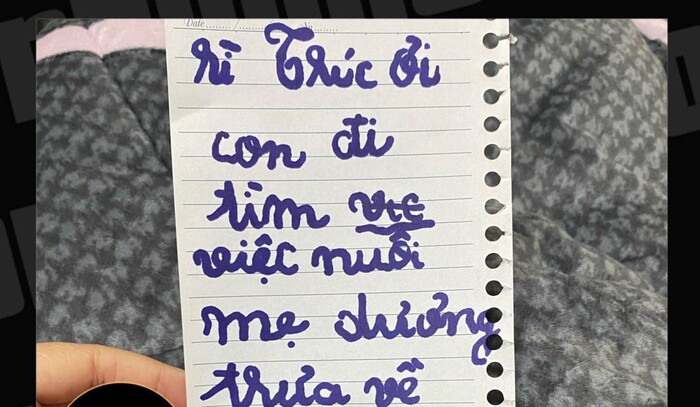 Date......./.......... No...............
hì Thúc ơi
con đi
tìm việc
việc nuôi
mẹ dưỡng
trưa về